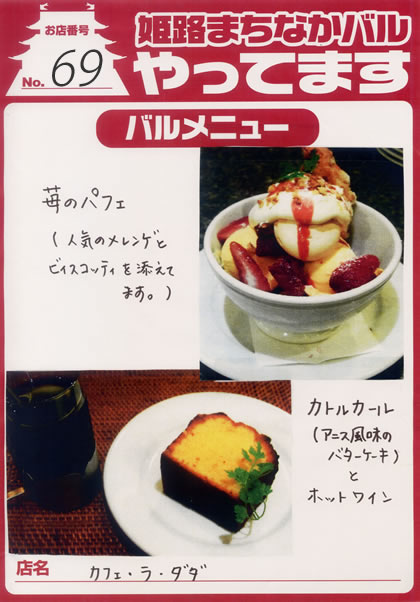 お店番号
No. 69
姫路まちなかバル
やってます
バルメニュー
苺のパフェ
(人気のメレンゲと
ビスコッティを添えて
ます。)
カトルカール
(アニス風味の
バターケーキ)
と
ホットワイン
店名
カフェ・ラ・ダダ